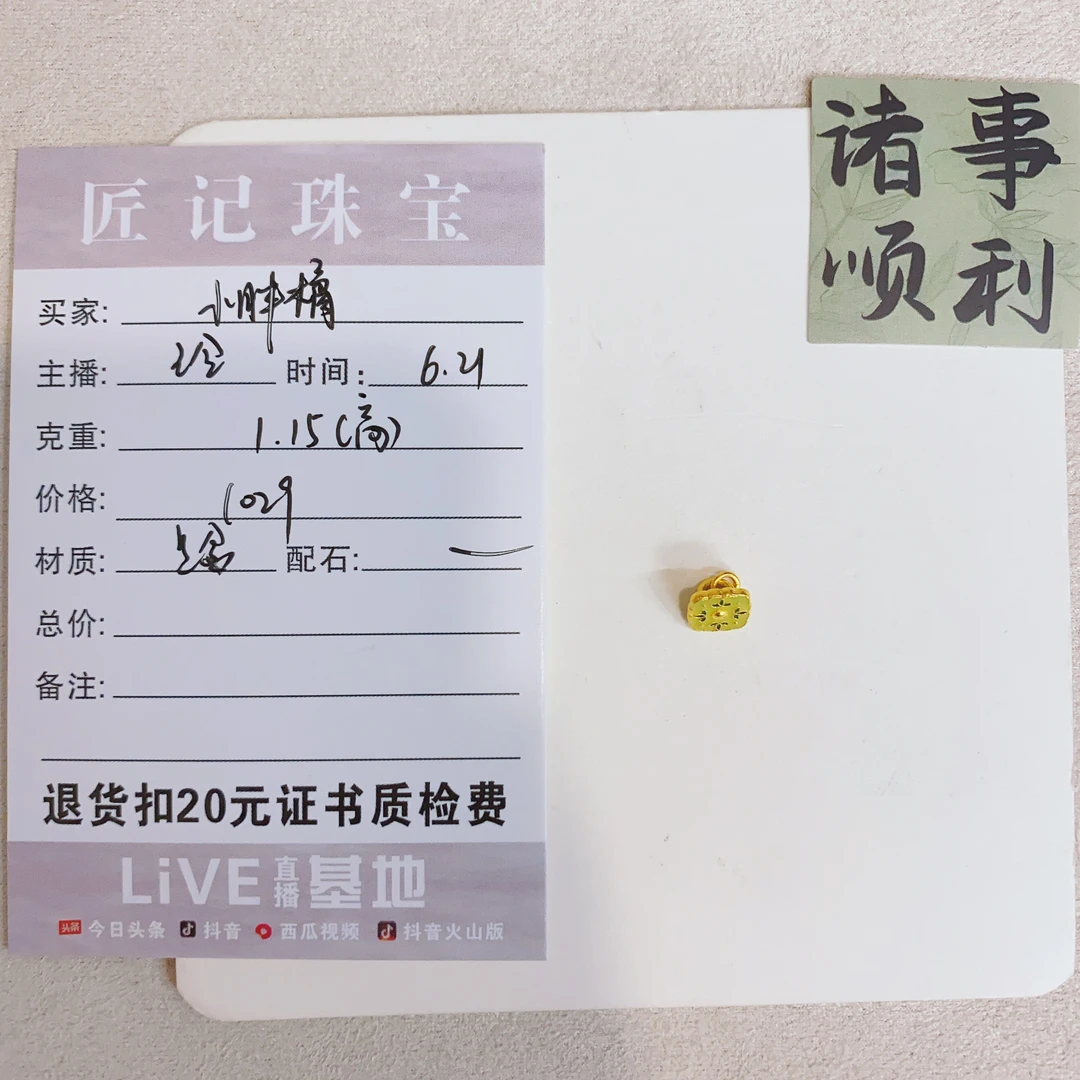 匠记珠宝
买家: 小胖桶
主播: 时间: 6.21
克重: 1.15(高)
价格: 1029
材质: 足金 配石: 一
总价:
备注:
退货扣20元证书质检费
LiVE直播基地
头条 今日头条 抖音 西瓜视频 抖音火山版
诸事
顺利